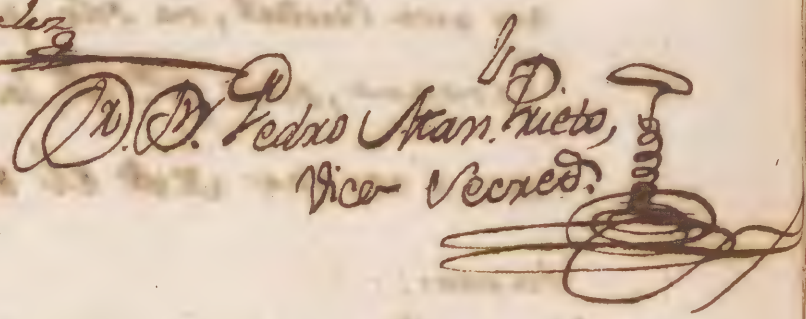 Dr. Dn. Pedro Atan. Prieto,
Vice Secretᵒ.